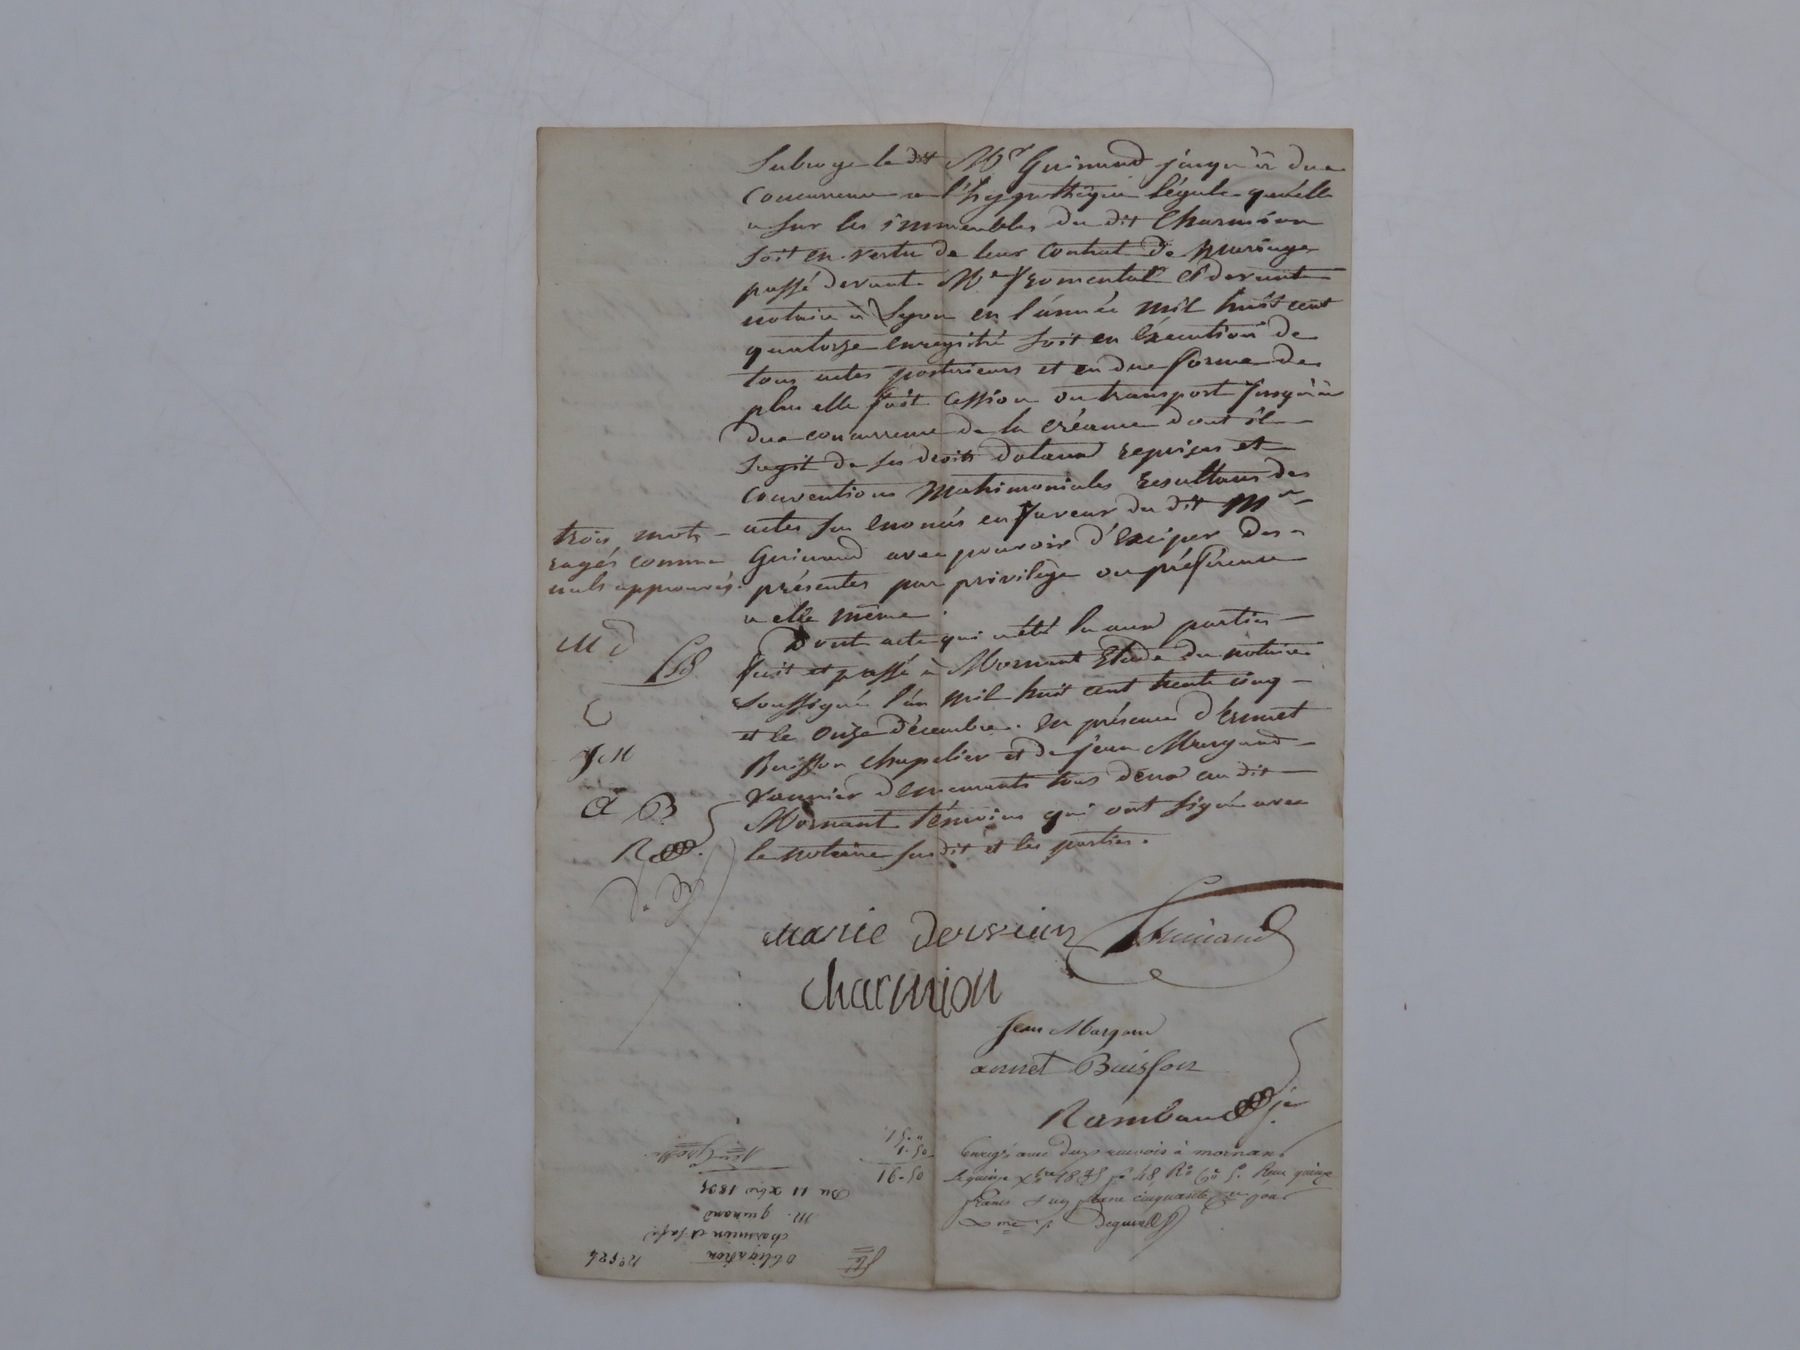 Subroge le dit Mr Guinand jusqu'à due
concurrence a l'hypothèque légale qu'elle
a sur les immeubles du dit Charmion
soit en vertu de leur contrat de mariage
passé devant Me Fromental et devant
notaire à Lyon en l'année mil huit cent
quatorze enregistré soit en exécution de
tous actes postérieurs et en due forme de
plus elle fait cession ou transport jusqu'à
due concurrence de la créance dont il
sagit de ses droits dotaux reprises et
conventions matrimoniales resultans des
actes sus enoncés en faveur du dit Mr
Guinand avec pouvoir d'exciper des
présentes par privilège ou préférence
a elle même.
Dont acte qui a été lu aux parties
fait et passé à Mornant Etude du notaire
soussigné l'an mil huit cent trente cinq
et le onze décembre. En présence d'Ennet
Buisson chapelier et de jean Margand
vannier demeurants tous deux au dit
Mornant témoins qui ont signé avec
le notaire susdit et les parties.
trois mots
rayés comme
nuls approuvés.
M d
C
J M
a B
R
Marie dervieux Guinand
charmion
Jean Margand
annet Buisson
Rambaud jer
Enregé avec deux renvois à mornant
le quinze Xbre 1835 fo 48 Ro Reçu quinze
francs cinquante pour
Xme
16-50
1-50
Du 11 Xbre 1835
M. guinand
charmion et sa fe
Obligation
No 524